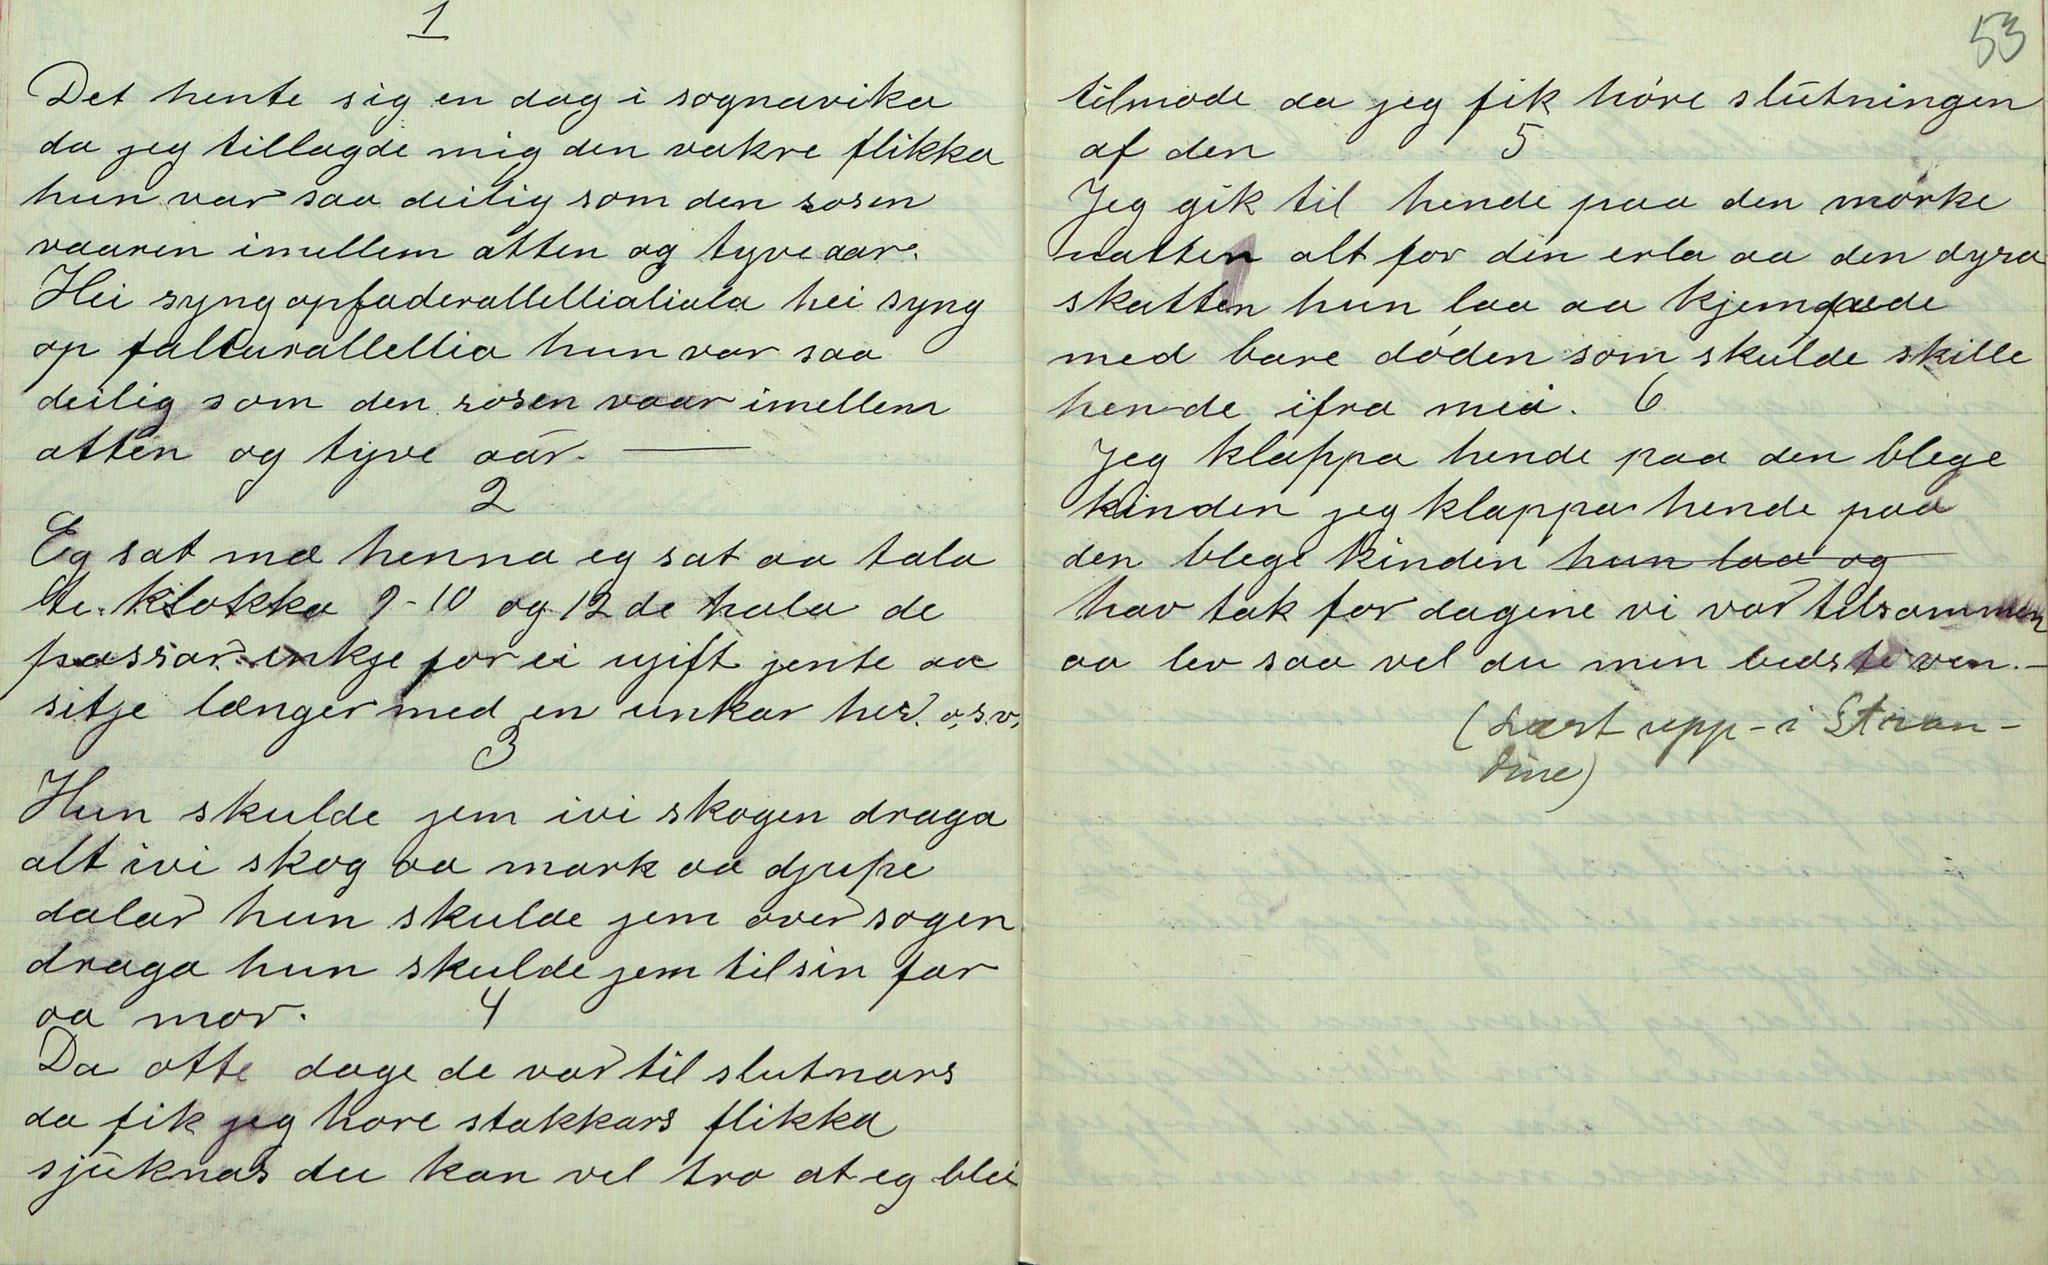 1
Det hente sig en dag i sognavika
da jeg tillagde mig den vakre flikka
hun var saa deilig som den rosen
vaaren imellem atten og tyve aar.
Hei syng opfaderallellialiala hei syng
op falturallellia hun var saa
deilig som den rosen vaar imellem
atten og tyve aar.
2
Eg sat mæ henna eg sat aa tala
te klokka 9-10 og 12 de hala de
passar inkje for ei ugift jente aa
sitje længer med en unkar her. o,s.v,
3
Hun skulde jem ivi skogen draga
alt ivi skog aa mark aa djupe
dalar hun skulde jem over sogen
draga hun skulde jem til sin far
aa mor.
4
Da otte dage de var til slutnars
da fik jeg hore stakkars flikka
sjuknas du kan vel tro at eg blei
53
tilmode da jeg fik høre slutningen
af den
5
Jeg gik til hende paa den mørke
natten alt for din erla aa den dyra
skatten hun laa aa kjempede
med bare døden som skulde skille
hende ifra mei.
6
Jeg klappa hende paa den blege
kinden jeg klappa hende paa
den blege kinden hun laa og
hav tak for dagene vi var tilsammen
aa lev saa vel du min bedste ven.
(Lært upp i Stran-
dine)